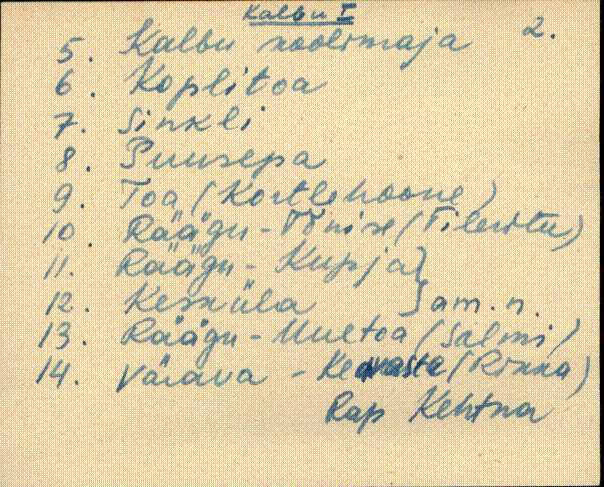 Kalbu I
2.
5. Kalbu koolimaja
6. Koplitoa
7. Sinkli
8. Puusepa
9. Toa (Kortlehoone)
10. Räägu - Tõnise (Tileristu)
11. Räägu - Kupja }
12. Kesküla } am. n.
13. Räägu - Uuetoa (Salmi)
14. Värava - (Rinna)
Rap Kehtna